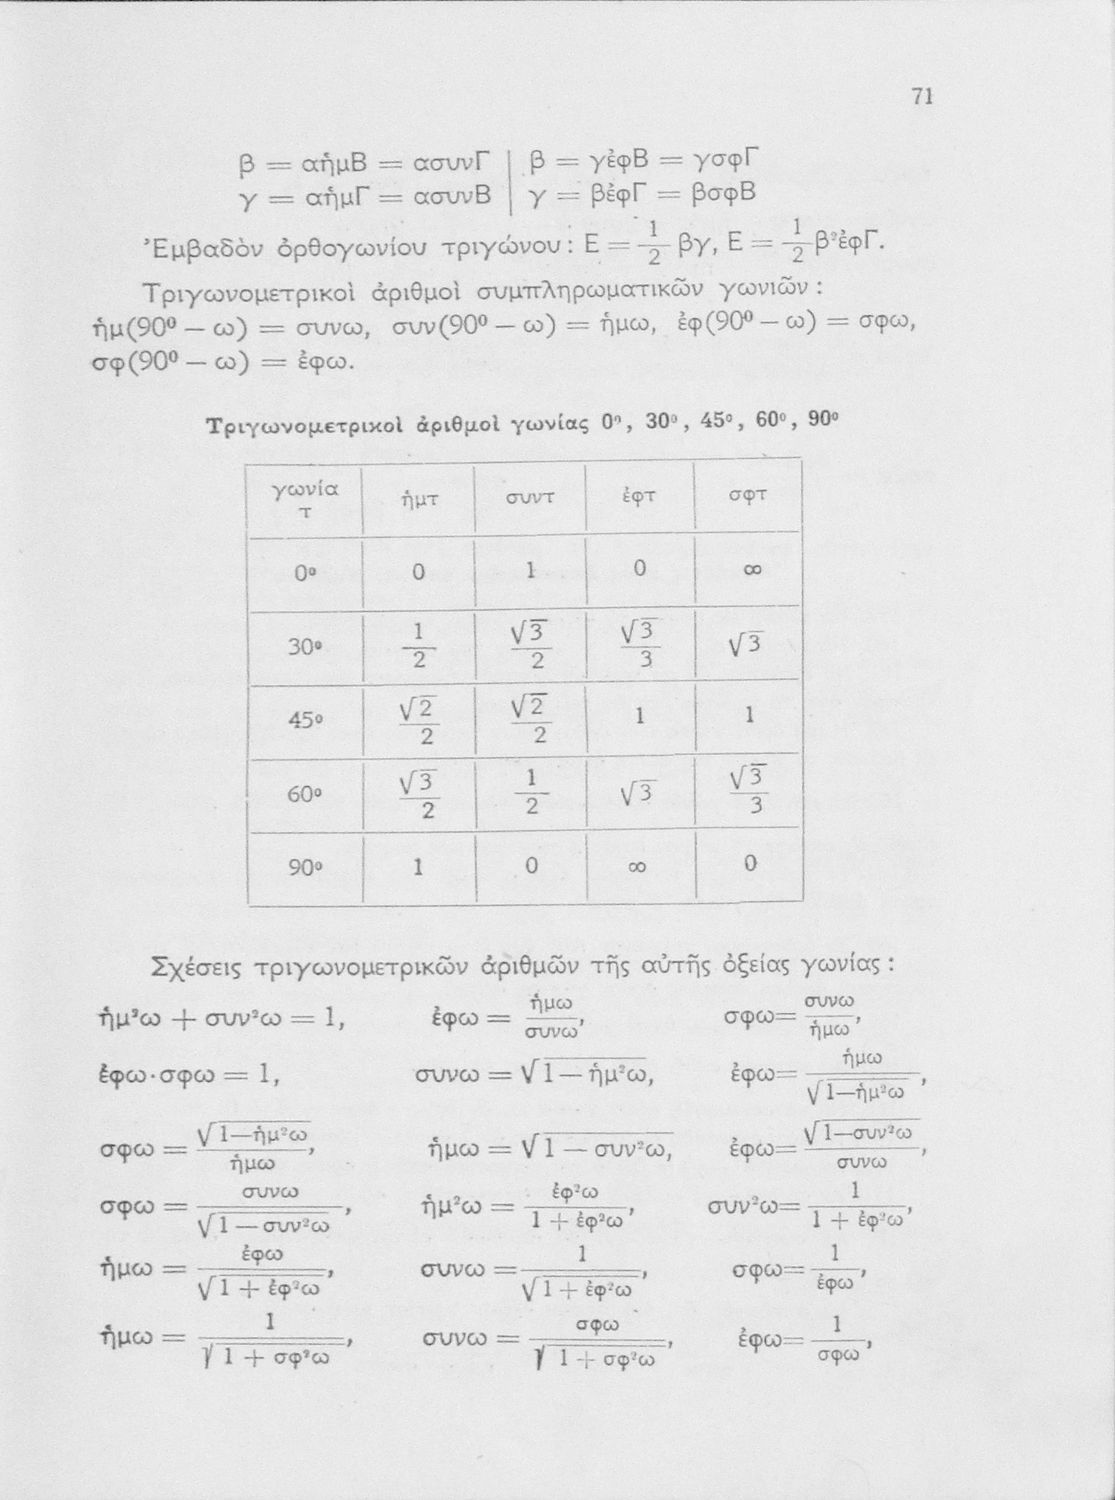 71
β = αἡμΒ = ασυνΓ | β = γἐφΒ = γσφΓ
γ = αἡμΓ = ασυνΒ | γ = βἐφΓ = βσφΒ
Ἐμβαδὸν ὀρθογωνίου τριγώνου: Ε = 1/2 βγ, Ε = 1/2 β²ἐφΓ.
Τριγωνομετρικοὶ ἀριθμοὶ συμπληρωματικῶν γωνιῶν :
ἡμ(90⁰ — ω) = συνω, συν(90⁰ — ω) = ἡμω, ἐφ(90⁰ — ω) = σφω,
σφ(90⁰ — ω) = ἐφω.
Τριγωνομετρικοὶ ἀριθμοὶ γωνίας 0⁰, 30⁰, 45⁰, 60⁰, 90⁰
γωνία τ | ἡμτ | συντ | ἐφτ | σφτ
0⁰ | 0 | 1 | 0 | ∞
30⁰ | 1/2 | √3/2 | √3/3 | √3
45⁰ | √2/2 | √2/2 | 1 | 1
60⁰ | √3/2 | 1/2 | √3 | √3/3
90⁰ | 1 | 0 | ∞ | 0
Σχέσεις τριγωνομετρικῶν ἀριθμῶν τῆς αὐτῆς ὀξείας γωνίας :
ἡμ²ω + συν²ω = 1, ἐφω = ἡμω/συνω, σφω= συνω/ἡμω,
ἐφω·σφω = 1, συνω = √(1— ἡμ²ω), ἐφω= ἡμω/√(1—ἡμ²ω),
σφω = √(1—ἡμ²ω)/ἡμω, ἡμω = √(1 — συν²ω), ἐφω= √(1—συν²ω)/συνω,
σφω = συνω/√(1 — συν²ω), ἡμ²ω = ἐφ²ω/(1 + ἐφ²ω), συν²ω= 1/(1 + ἐφ²ω),
ἡμω = ἐφω/√(1 + ἐφ²ω), συνω = 1/√(1 + ἐφ²ω), σφω= 1/ἐφω,
ἡμω = 1/√(1 + σφ²ω), συνω = σφω/√(1 + σφ²ω), ἐφω= 1/σφω,